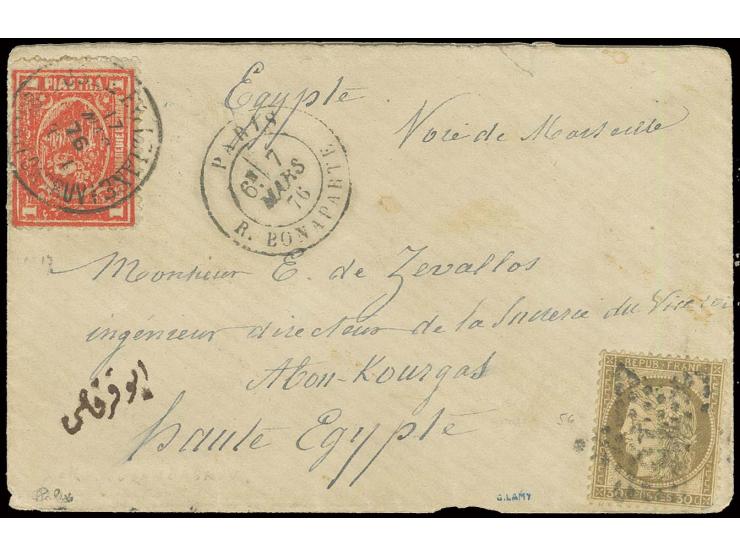 Egypte
Voie de Marseille
PARIS
R. BONAPARTE
7
MARS
76
Monsieur E. de Zevallos
ingénieur directeur de la Sucrerie du Vice roi
Abou-Kourgas
Haute Egypte
ابو قرقاص
REPUB. FRANC.
30 30
G. LAMY